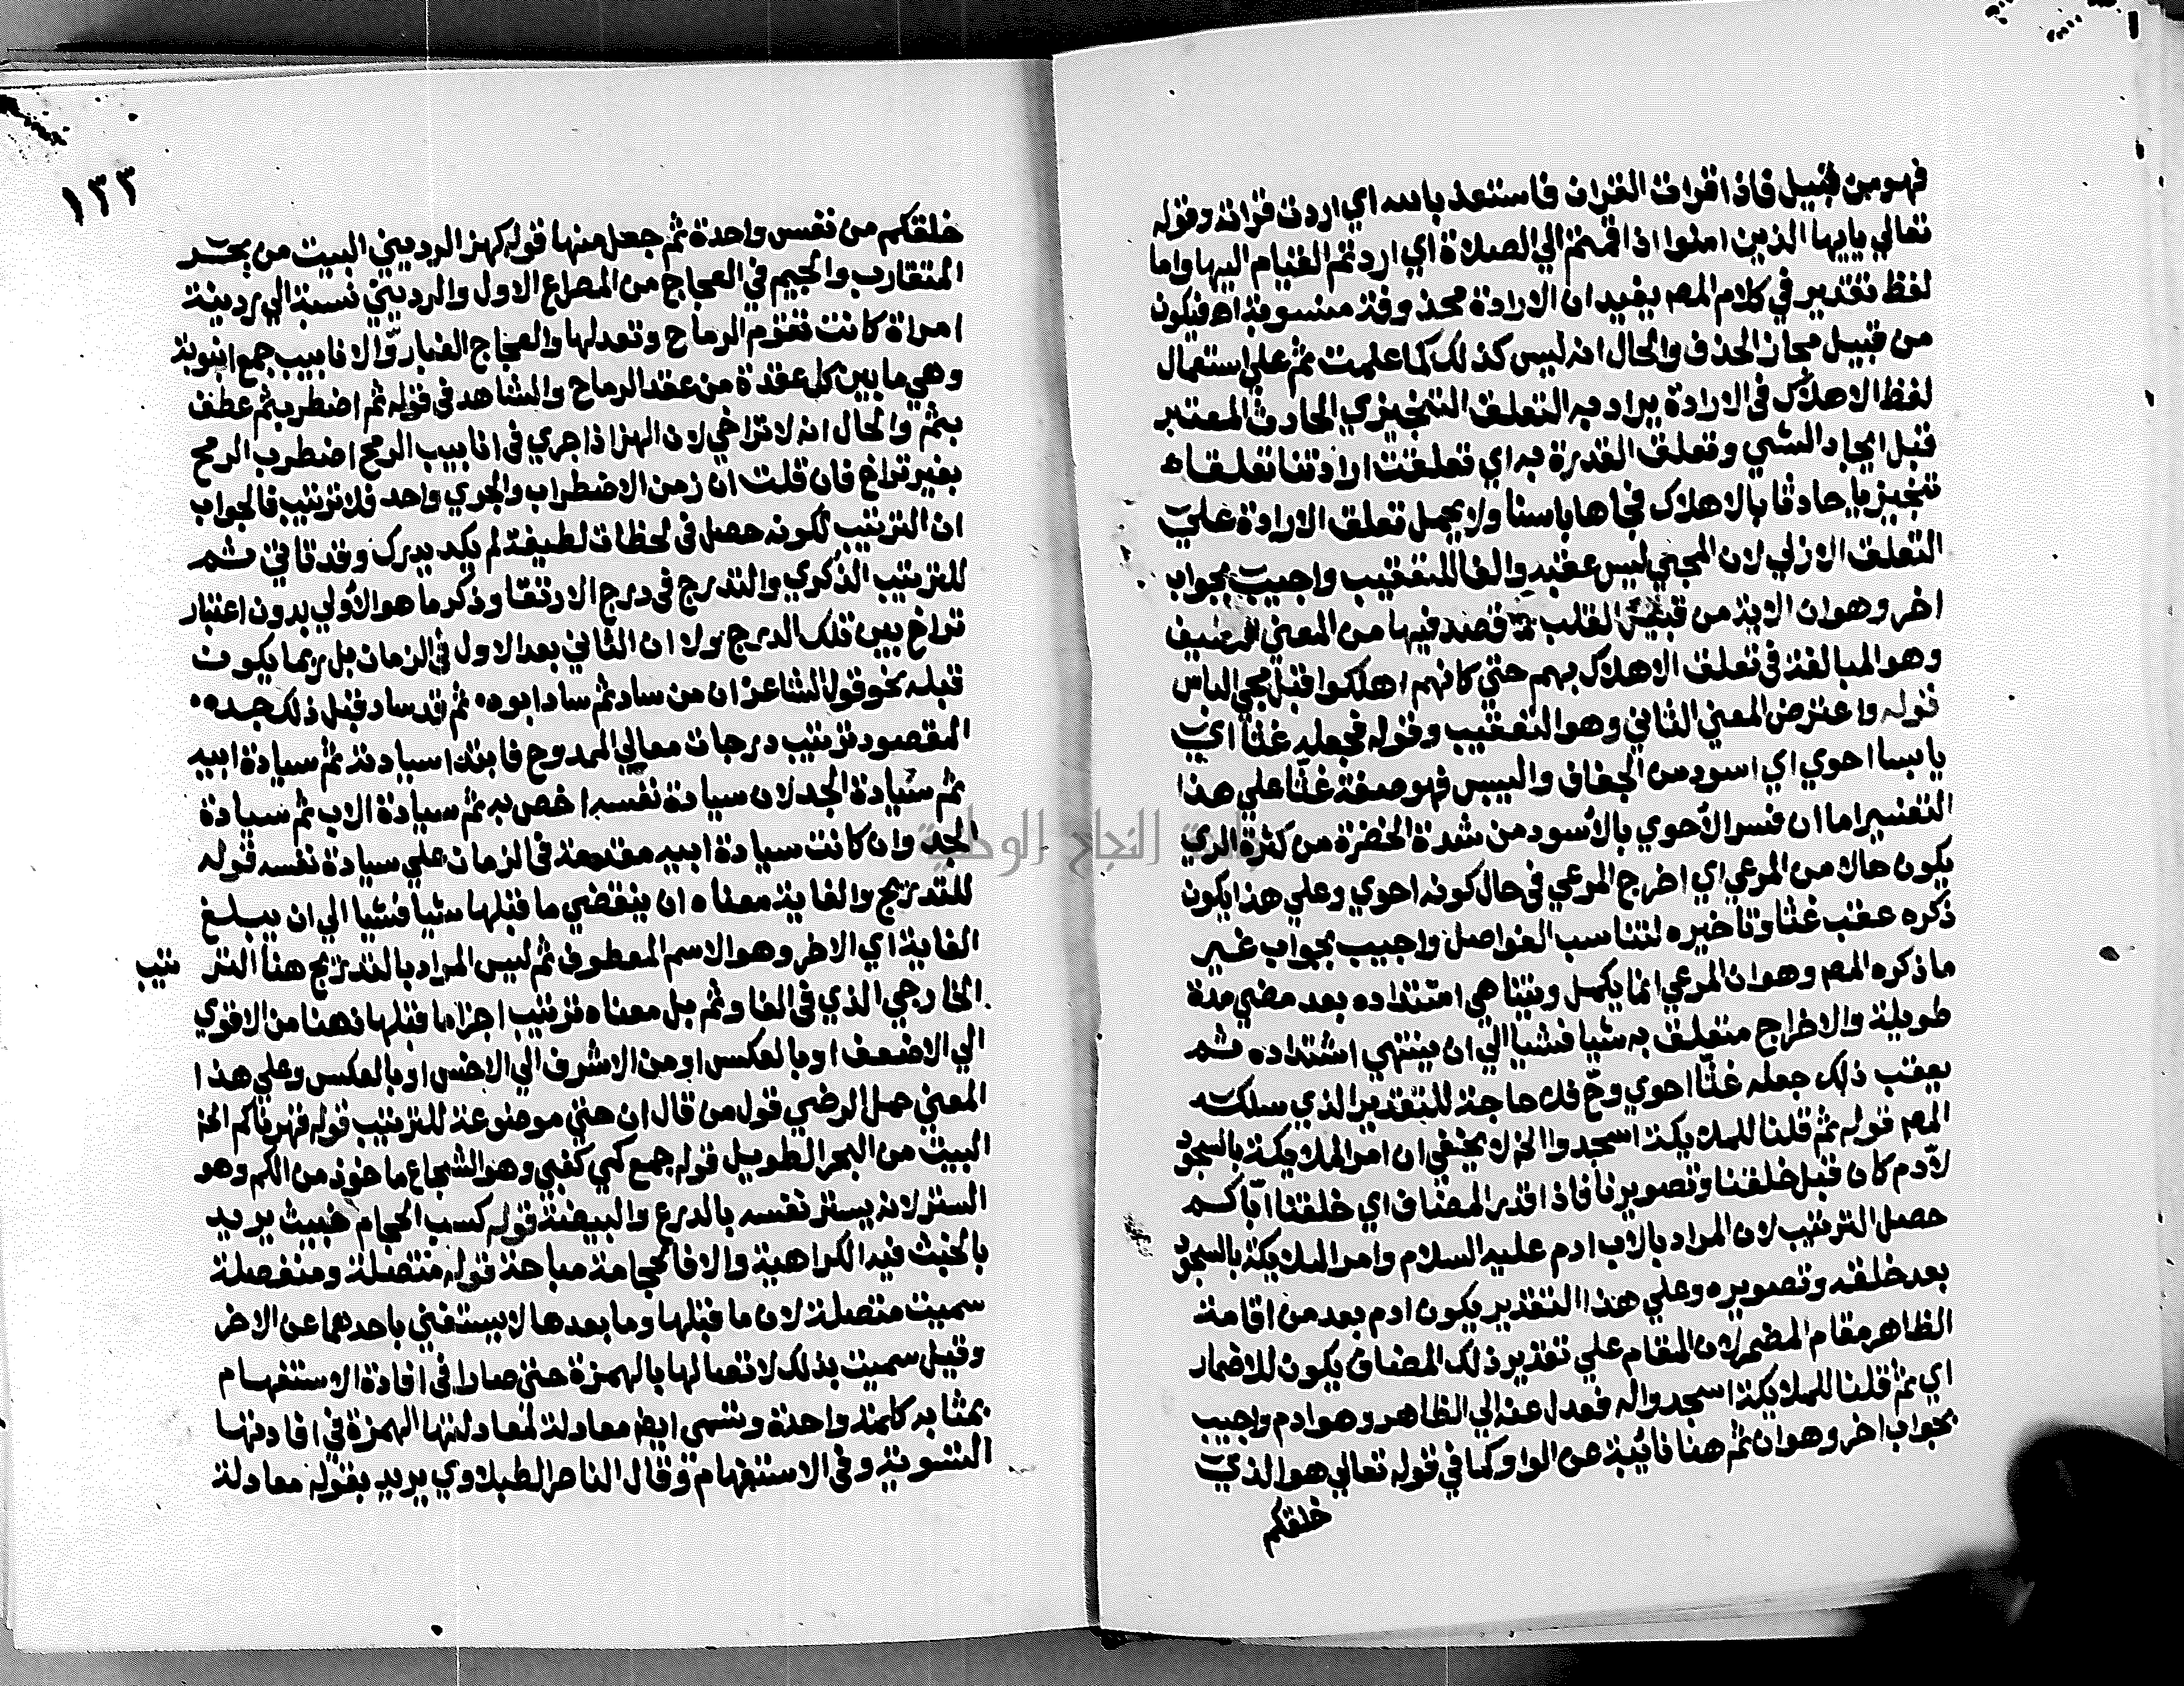 فهو من قبيل فاذا قرات القران فاستعذ بالله اي اردت قراته وقوله
تعالي يايها الذين امنوا اذا قمتم الي الصلاة اي اردتم القيام اليها واما
لفظ تقدير في كلام المصـ يفيد ان الارادة محذوفة منسوبة اهـ فتكون
من قبيل مجاز الحذف والحال انه ليس كذلك كما علمت ثم علي استعمال
لفظ الاهلاك في الارادة يراد به التعلق التنجيزي الحادث المعتبر
قبل ايجاد الشي وتعلق القدرة به اي تعلقت ارادتنا تعلقا
تنجيزيا حادثا بالاهلاك فجاها باسنا ولا يحمل تعلق الارادة علي
التعلق الازلي لان المجي ليس عقبه والفا للتعقيب واجيب بجواب
اخر وهو ان الاية من قبيل القلب قصد فيها من المعني
وهو المبالغة في تعلق الاهلاك بهم حتي كانهم اهلكوا قبل مجي الباس
قوله واعترض المعني الثاني وهو التعقيب وقوله فجعله غثا اي
يابسا احوي اي اسود من الجفاف واليبس فهو صفة غثا علي هذا
التفسير اما ان فسر الاحوي بالاسود من شدة الخضرة من كثرة الري
يكون حالا من المرعي اي اخرج المرعي في حال كونه احوي وعلي هذا يكون
ذكره عقب غثا وتاخيره لتناسب الفواصل واجيب بجواب غير
ما ذكره المصـ وهو ان المرعي انما يكمل ويتناهي اشتداده بعد مضي مدة
طويلة والاخراج متعلق به شيا فشيا الي ان ينتهي اشتداده ثم
يعقب ذلك جعله غثا احوي وح فلا حاجة للتقدير الذي سلكه
المصـ قوله ثم قلنا للملايكة اسجدوا الخ لا يخفي ان امر الملايكة بالسجود
لادم كان قبل خلقنا وتصويرنا فاذا قدر المضاف اي خلقنا اباكم
حصل الترتيب لان المراد بالاب ادم عليه السلام وامر الملايكة بالسجود
بعد خلقه وتصويره وعلي هذا التقدير يكون ادم بعد من اقامة
الظاهر مقام المضمر لان المقام علي تقدير ذلك المضاف يكون للاضمار
اي ثم قلنا للملايكة اسجدوا له فعدل عنه الي الظاهر وهو ادم واجيب
بجواب اخر وهو ان ثم هنا نائبة عن الواو كما في قوله تعالي هو الذي
خلقكم
١٣٣
خلقكم من نفس واحدة ثم جعل منها قوله كهز الرديني البيت من بحر
المتقارب والجيم في العجاج من المصراع الاول والرديني نسبة الي ردينة
امراة كانت تقوم الرماح وتعدلها والعجاج الغبار والانابيب جمع انبوبة
وهي ما بين كل عقدة من عقد الرماح والشاهد في قوله ثم اضطرب ثم عطف
بثم والحال انه لا تراخي لان الهز اذا جري في انابيب الرمح اضطرب الرمح
بغير تراخ فان قلت ان زمن الاضطراب والجري واحد فلا ترتيب فالجواب
ان الترتيب لكونه حصل في لحظات لطيفة لم يكد يدرك وقد تاتي ثم
للترتيب الذكري والتدرج في درج الارتقا وذكر ما هو الاولي بدون اعتبار
تراخ بين تلك الدرج ولا ان الثاني بعد الاول في الزمان بل ربما يكون
قبله نحو قول الشاعر ان من ساد ثم ساد ابوه ثم قد ساد قبل ذلك جده
المقصود ترتيب درجات معالي الممدوح فابتدا سيادته ثم سيادة ابيه
ثم سيادة الجد لان سيادة نفسه اخص به ثم سيادة الاب ثم سيادة
الجد وان كانت سيادة ابيه مقدمة في الزمان علي سيادة نفسه قوله
للتدريج والغاية معناه ان ينقضي ما قبلها شيا فشيا الي ان يبلغ
الغاية اي الاخر وهو الاسم المعطوف ثم ليس المراد بالتدريج هنا التر تيب
الخارجي الذي في الفا وثم بل معناه ترتيب اجزا ما قبلها ذهنا من الاقوي
الي الاضعف او بالعكس او من الاشرف الي الاخس او بالعكس وعلي هذا
المعني حمل الرضي قول من قال ان حتي موضوعة للترتيب قوله قهرناكم الخ
البيت من البحر الطويل قوله جمع كمي كغبي وهو الشجاع ماخوذ من الكم وهو
الستر لانه يستر نفسه بالدرع والبيضة قوله كسب الحجام خبيث يريد
بالخبث فيه الكراهية والا فالحجامة مباحة قوله متصلة ومنفصلة
سميت متصلة لان ما قبلها وما بعدها لا يستغني باحدهما عن الاخر
وقيل سميت بذلك لاتصالها بالهمزة حتي صارا في افادة الاستفهام
بمثابه كلمة واحدة وتسمي ايضا معادلة لمعادلتها الهمزة في افادتها
التسوية وفي الاستفهام وقال الناصر الطبلاوي يريد بقوله معادلة
جامعة النجاح الوطنية